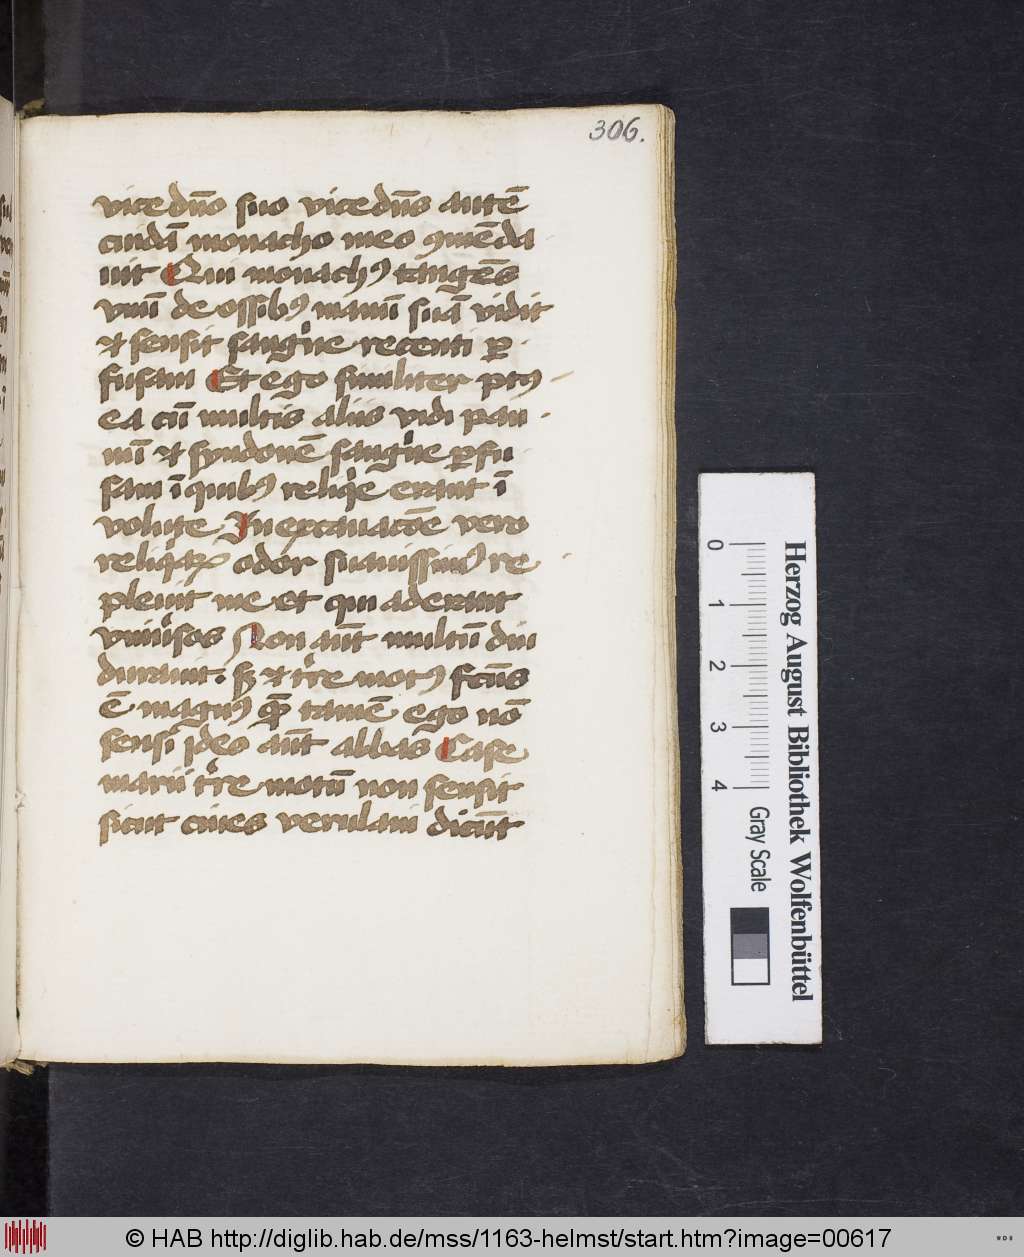 306.
vicedn̄o suo vicedn̄s autē
cuidā monacho meo ꝯmēda
uit Qui monachꝰ tangēs
vnū de ossibꝰ manū suā vidit
⁊ sensit sangͥne recenti ꝑ
fusam Et ego similiter pͥꝰ
ea cū multis aliis vidi pan
nū ⁊ syndonē sangͥne ꝑfu
sam ī quibꝰ reliqͥe erant ī
volute In excauacōe vero
reliqͥaꝝ odor suauissimꝰ re
pleuit me et qui aderant
vniūsos Non aūt multū diu
durauit. sꝫ ⁊ tr̄re motꝰ fc̄us
ē magnꝰ quē tamē ego nō
sensi Ideo aūt abbas Case
marii tr̄re motū non sensit
sicut ciues verulani dicūt
Herzog August Bibliothek Wolfenbüttel
0 1 2 3 4 Gray Scale
© HAB http://diglib.hab.de/mss/1163-helmst/start.htm?image=00617